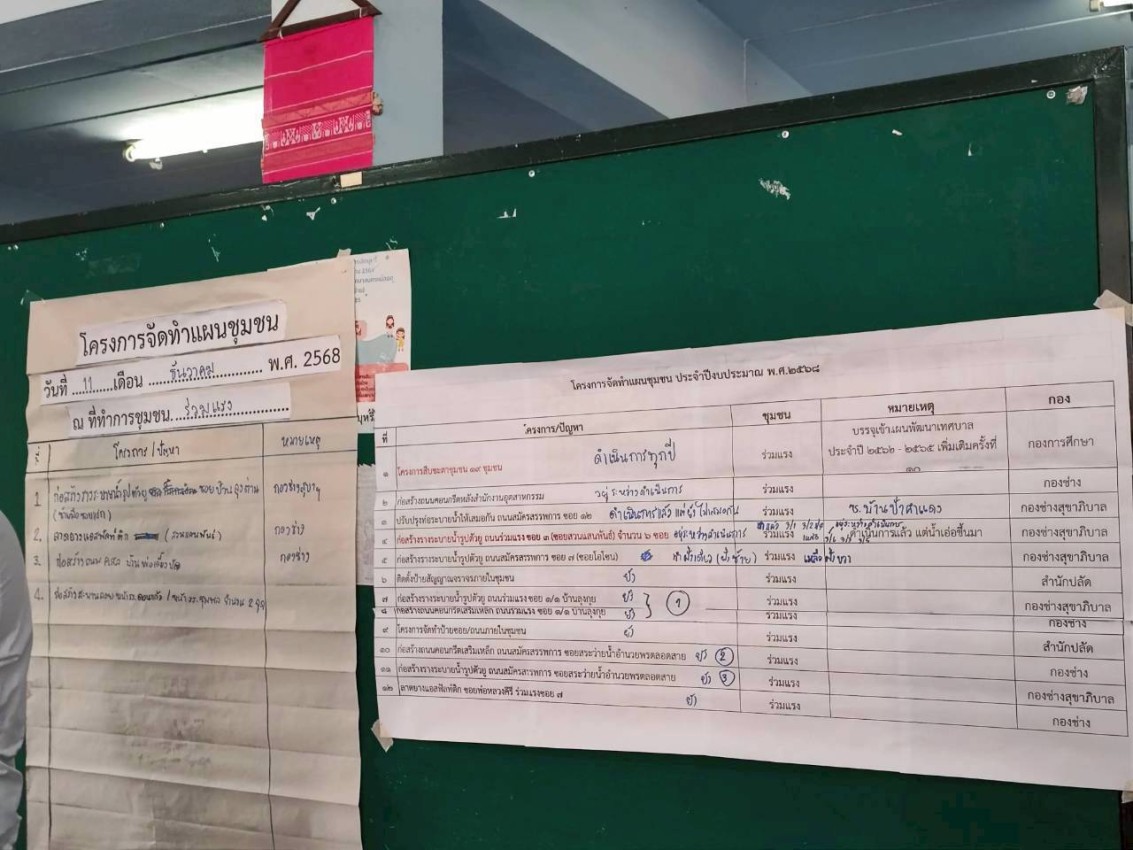 โครงการจัดทำแผนชุมชน
วันที่ ....11......เดือน .....ธันวาคม............ พ.ศ. 2568
ณ ที่ทำการชุมชน....ร่วมแรง...............
ที่ โครงการ/ปัญหา หมายเหตุ
1. ก่อสร้างรางระบายน้ำรูปตัวยู ซอย กองช่างสุขาฯ
2. ลาดยางแอสฟัลท์ติก กองช่าง
3. ก่อสร้างถนน คสล. บ้าน กองช่าง
4.
โครงการจัดทำแผนชุมชน ประจำปีงบประมาณ พ.ศ.๒๕๖๘
ที่ โครงการ/ปัญหา ชุมชน หมายเหตุ กอง
๑ โครงการสืบชะตาชุมชน ๑๙ ชุมชน ดำเนินการทุกปี ร่วมแรง บรรจุเข้าแผนพัฒนาเทศบาล กองการศึกษา
ประจำปี ๒๕๖๑ - ๒๕๖๕ เพิ่มเติมครั้งที่
๑๐
๒ ก่อสร้างถนนคอนกรีตหลังสำนักงานอุตสาหกรรม อยู่ระหว่างดำเนินการ ร่วมแรง กองช่าง
๓ ปรับปรุงท่อระบายน้ำให้เสมอกัน ถนนสมัครสรรพการ ซอย ๑๒ ดำเนินการแล้ว แต่ยังไม่เสมอกัน ร่วมแรง ซ.บ้านป้าคำแดง กองช่างสุขาภิบาล
๔ ก่อสร้างรางระบายน้ำรูปตัวยู ถนนร่วมแรง ซอย ๓ (ซอยสวนแสนพันธ์) จำนวน ๖ ซอย อยู่ระหว่างดำเนินการ ร่วมแรง ดำเนินการแล้ว แต่น้ำเอ่อขึ้นมา กองช่างสุขาภิบาล
๕ ก่อสร้างรางระบายน้ำรูปตัวยู ถนนสมัครสรรพการ ซอย ๗ (ซอยโอโซน) ทำฝั่งเดียว (ฝั่งซ้าย) ร่วมแรง เหลือฝั่งขวา กองช่างสุขาภิบาล
๖ ติดตั้งป้ายสัญญาณจราจรภายในชุมชน ยัง ร่วมแรง สำนักปลัด
๗ ก่อสร้างรางระบายน้ำรูปตัวยู ถนนร่วมแรง ซอย ๑/๑ บ้านลุงกุย ยัง ร่วมแรง กองช่างสุขาภิบาล
๘ ก่อสร้างถนนคอนกรีตเสริมเหล็ก ถนนร่วมแรง ซอย ๑/๑ บ้านลุงกุย ยัง 1 ร่วมแรง กองช่าง
๙ โครงการจัดทำป้ายซอย/ถนนภายในชุมชน ยัง ร่วมแรง สำนักปลัด
๑๐ ก่อสร้างถนนคอนกรีตเสริมเหล็ก ถนนสมัครสรรพการ ซอยสระว่ายน้ำอำนวยพรตลอดสาย ยัง 2 ร่วมแรง กองช่าง
๑๑ ก่อสร้างรางระบายน้ำรูปตัวยู ถนนสมัครสรรพการ ซอยสระว่ายน้ำอำนวยพรตลอดสาย ยัง 3 ร่วมแรง กองช่างสุขาภิบาล
๑๒ ลาดยางแอสฟัลท์ติก ซอยพ่อหลวงคีรี ร่วมแรงซอย ๗ ยัง ร่วมแรง กองช่าง